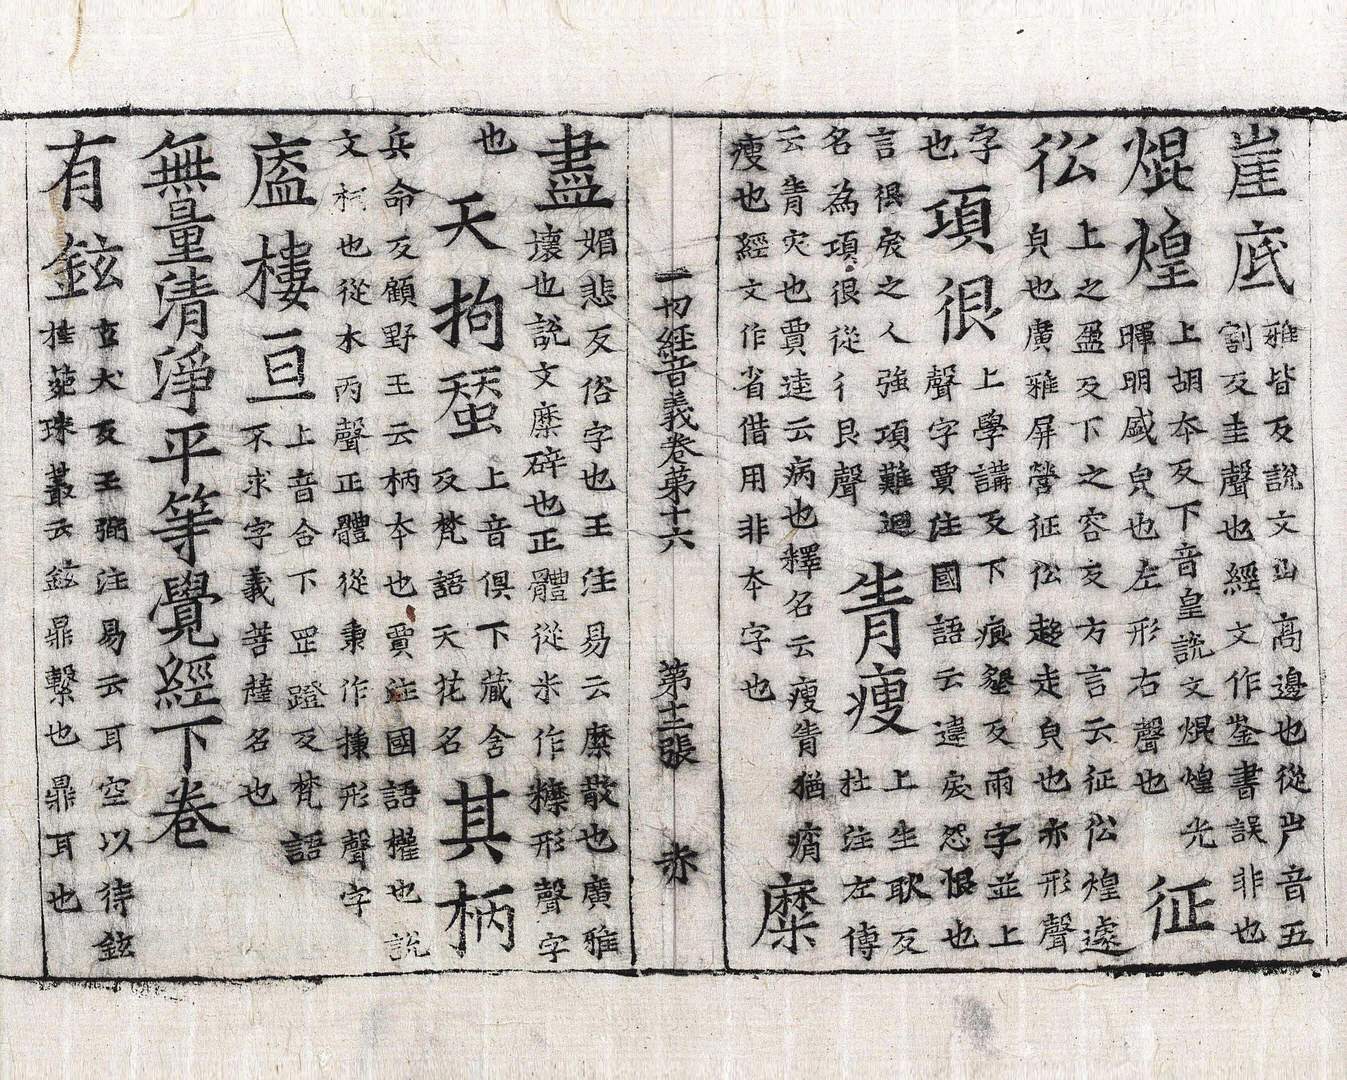 崖底雅皆反說文山高邊也從屵音五
割反圭聲也經文作崟書誤非也
焜煌上胡本反下音皇說文焜煌光
暉明盛皃也左形右聲也征
彸上之盈反下之容反方言云征彸煌遽
皃也廣雅屏營征彸趍走皃也亦形聲
字
也項佷上學講反下痕墾反兩字並上
聲字賈注國語云違戾怨恨也
言佷戾之人強項難迴
名為項佷從彳艮聲眚瘦上生耿反
杜注左傳
云眚灾也賈逵云病也釋名云瘦眚猶瘠
瘦也經文作省借用非本字也糜
一切經音義卷第十六 第十二張 赤
盡媚悲反俗字也王注易云糜散也廣雅
壞也說文糜碎也正體從米作䊳形聲字
也天拘蝅上音俱下蔵含
反梵語天花名其柄
兵命反顧野王云柄本也賈注國語權也說
文柯也從木丙聲正體從秉作棅形聲字
廅樓亘上音合下罡蹬反梵語
不求字義菩薩名也
無量清淨平等覺經下卷
有鉉玄犬反王弼注易云耳空以待鉉
桂苑珠叢云鉉鼎繫也鼎耳也